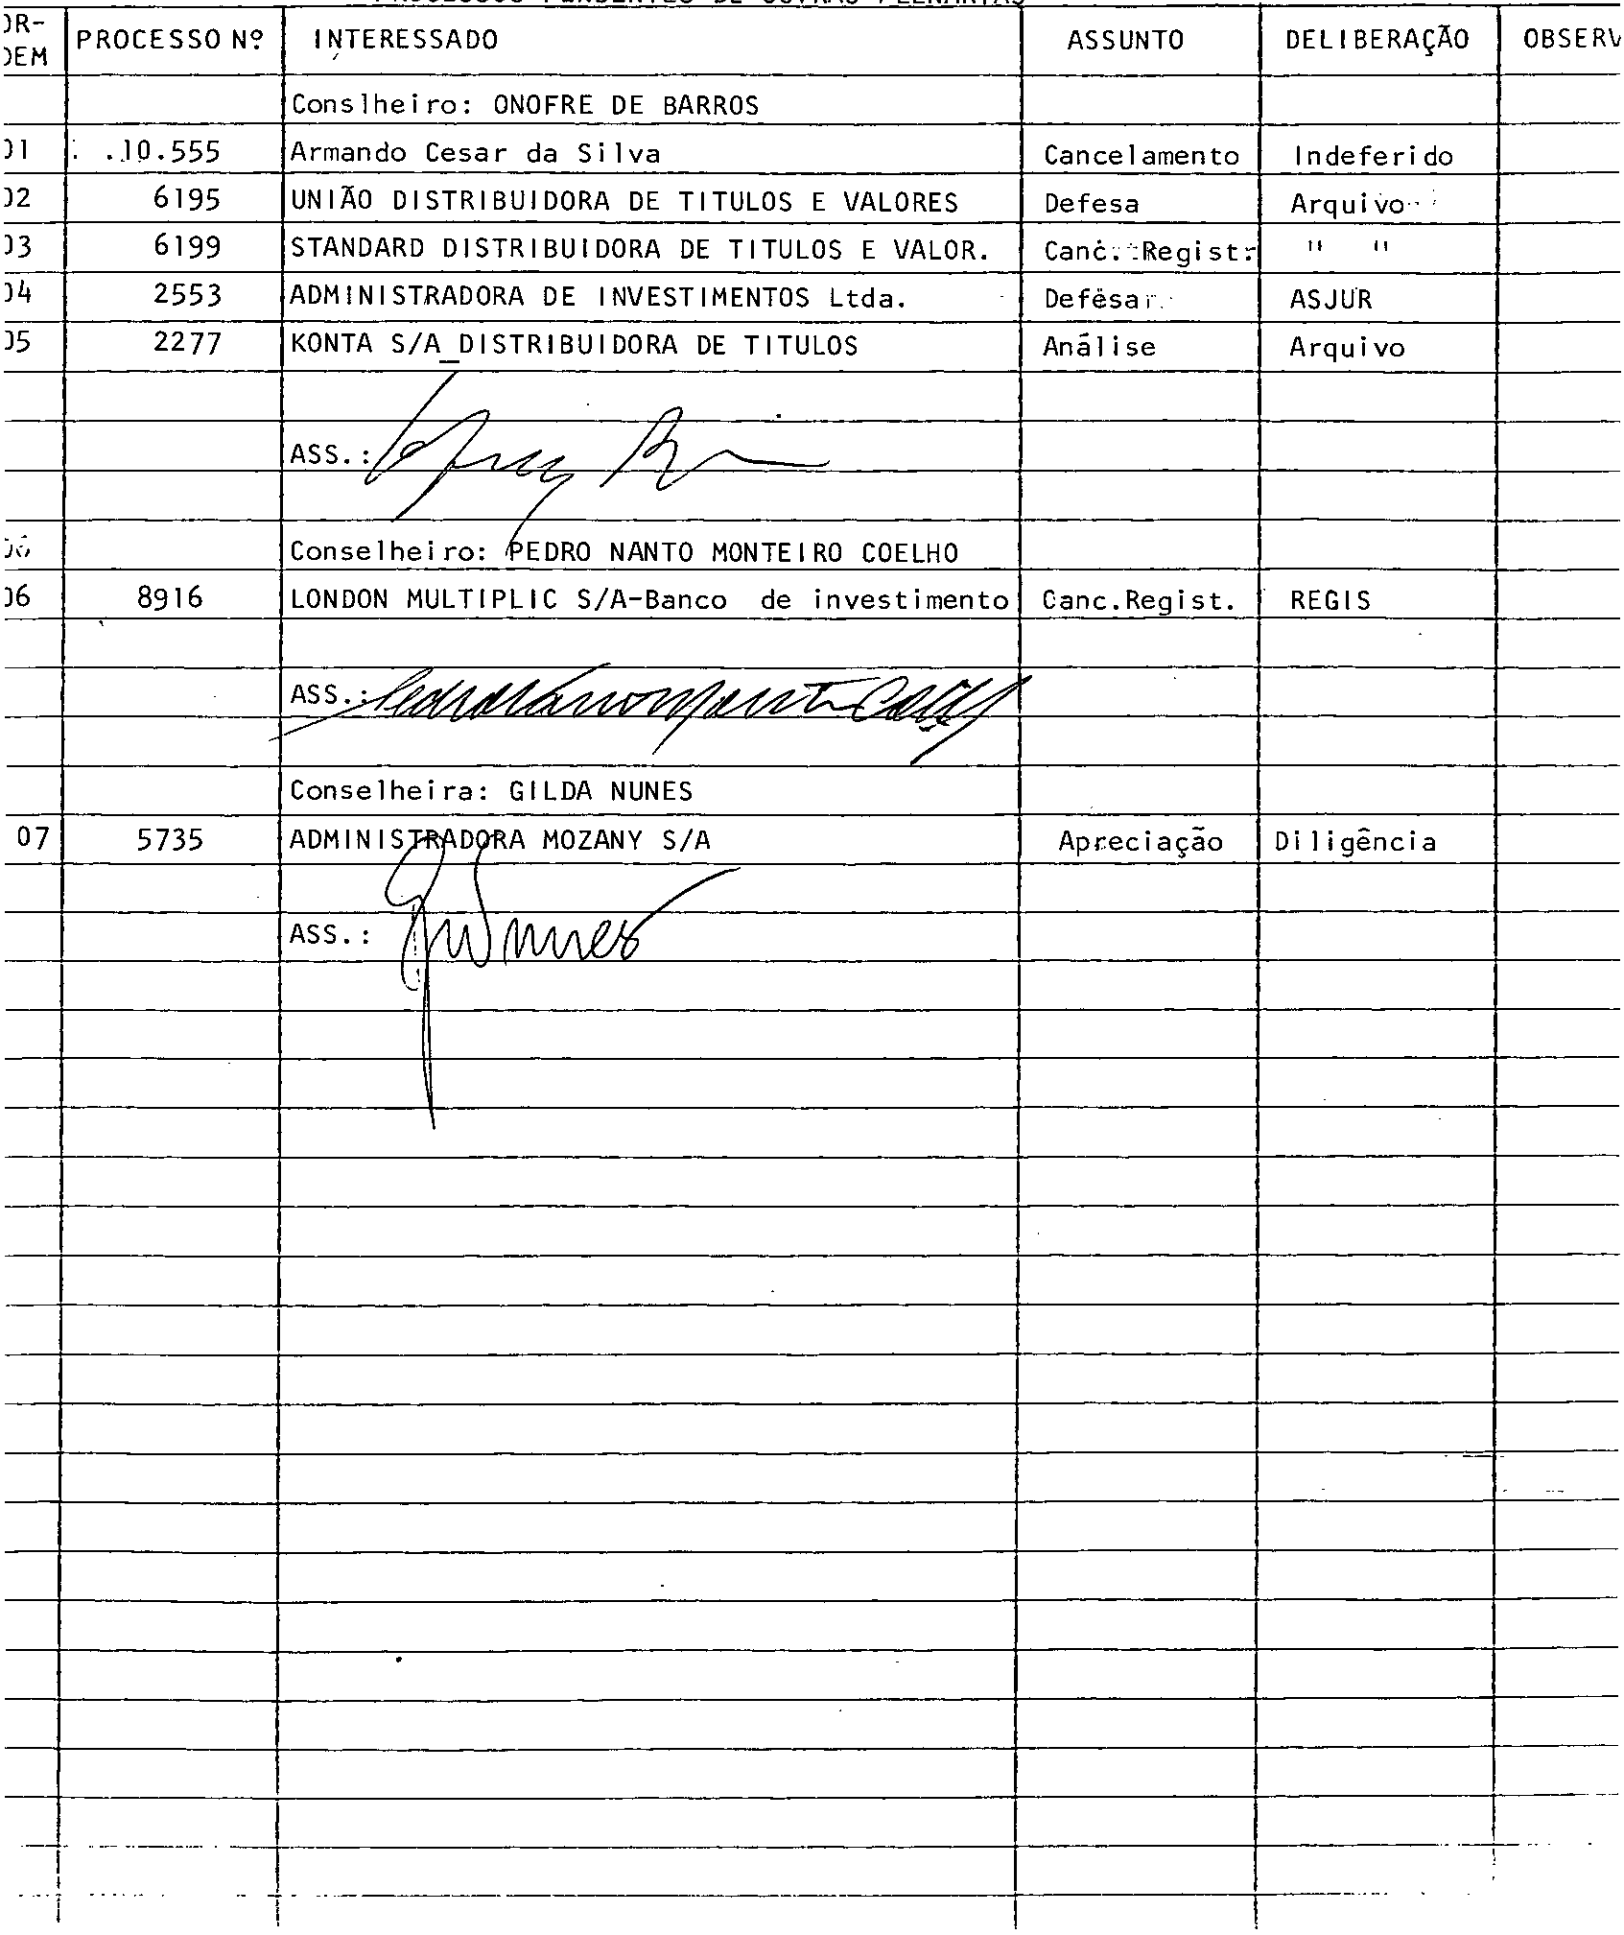 PROCESSOS PENDENTES DE OUTRAS PLENÁRIAS
OR-DEM PROCESSO Nº INTERESSADO ASSUNTO DELIBERAÇÃO OBSERV
Conslheiro: ONOFRE DE BARROS
01 10.555 Armando Cesar da Silva Cancelamento Indeferido
02 6195 UNIÃO DISTRIBUIDORA DE TITULOS E VALORES Defesa Arquivo
03 6199 STANDARD DISTRIBUIDORA DE TITULOS E VALOR. Canc. Regist. " "
04 2553 ADMINISTRADORA DE INVESTIMENTOS Ltda. Defesa ASJUR
05 2277 KONTA S/A DISTRIBUIDORA DE TITULOS Análise Arquivo
ASS.:
Conselheiro: PEDRO NANTO MONTEIRO COELHO
06 8916 LONDON MULTIPLIC S/A-Banco de investimento Canc.Regist. REGIS
ASS.:
Conselheira: GILDA NUNES
07 5735 ADMINISTRADORA MOZANY S/A Apreciação Diligência
ASS.: